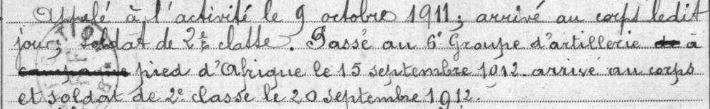 Appelé à l'activité le 9 octobre 1911; arrivé au corps ledit
jour; soldat de 2e classe. Passé au 6e Groupe d'artillerie de à
campagne pied d'Afrique le 15 septembre 1912. arrivé au corps
et soldat de 2e classe le 20 septembre 1912.